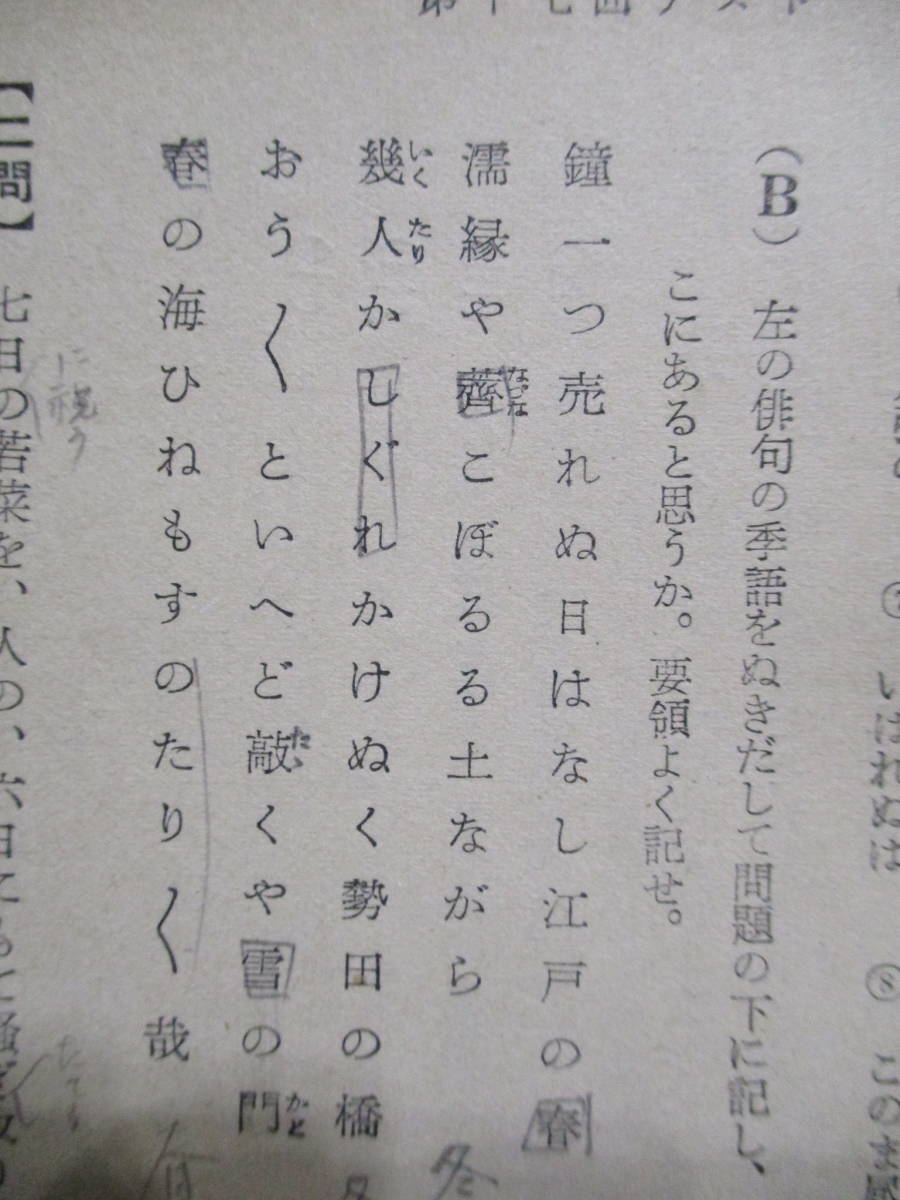 第十七回テスト
いはれぬは
(B) 左の俳句の季語をぬきだして問題の下に記し、
こにあると思うか。要領よく記せ。
鐘一つ売れぬ日はなし江戸の春
濡縁や薺こぼるる土ながら
なづな
冬
幾人かしぐれかけぬく勢田の橋
いくたり
おう〱といへど敲くや雪の門
たゝ
かど
春の海ひねもすのたり〱哉
【二問】 七日の若菜を、人の、六日に